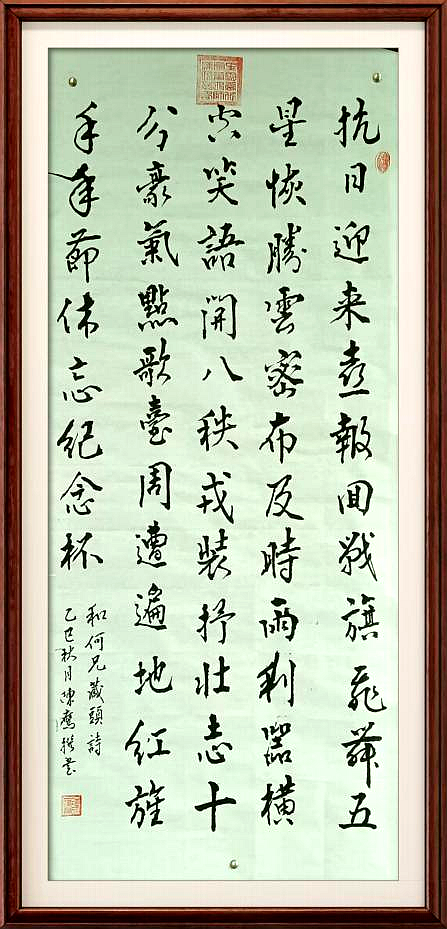 抗日迎来喜報囬戰旗飛舞五
星恢勝雲密布及時雨利器橫
空笑語開八秩戎裝抒壯志十
分豪氣點歌臺周遭遍地紅旌
手年節休忘紀念杯
和何兄藏頭詩
乙巳秋月陳鷹撰書